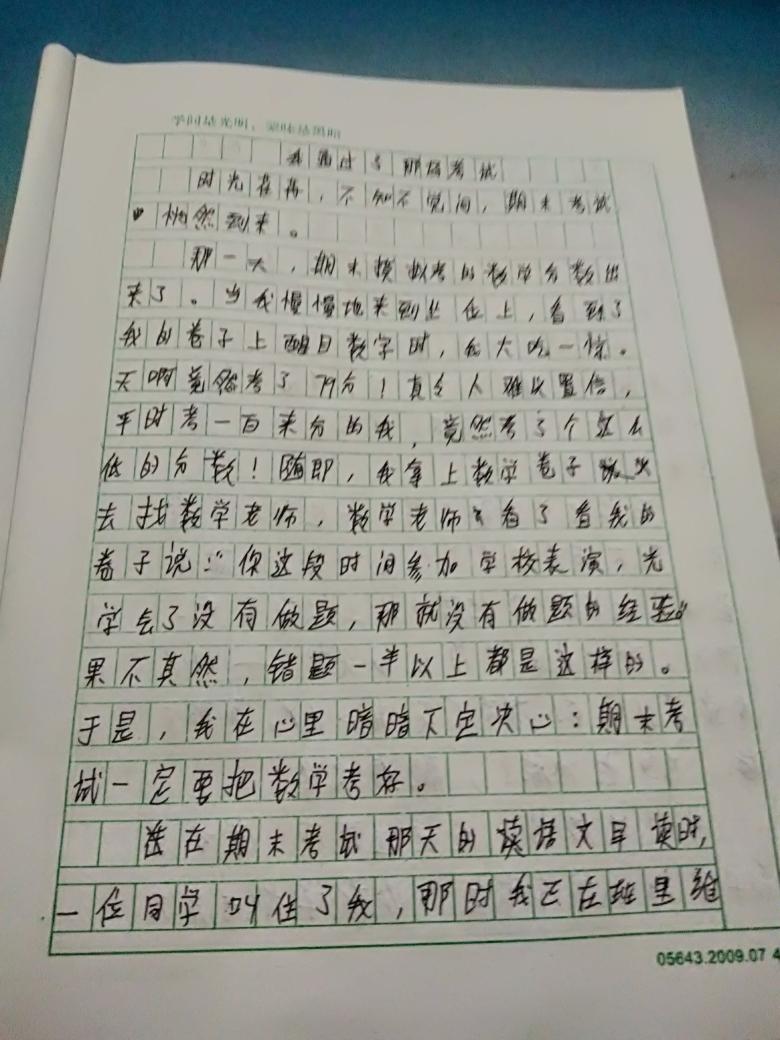 学问是光明，蒙昧是黑暗
我通过了那场考试
时光荏苒，不知不觉间，期末考试
悄然到来。
那一天，期末模拟考的数学分数出
来了。当我慢慢地来到坐位上，看到了
我的卷子上醒目数字时，我大吃一惊。
天啊竟然考了79分！真令人难以置信，
平时考一百来分的我，竟然考了个这么
低的分数！随即，我拿上数学卷子
去找数学老师，数学老师看了看我的
卷子说：“你这段时间参加学校表演，光
学会了没有做题，那就没有做题的经验。”
果不其然，错题一半以上都是这样的。
于是，我在心里暗暗下定决心：期末考
试一定要把数学考好。
在期末考试那天的读语文早读时，
一位同学叫住了我，那时我正在班里维
05643.2009.07 4